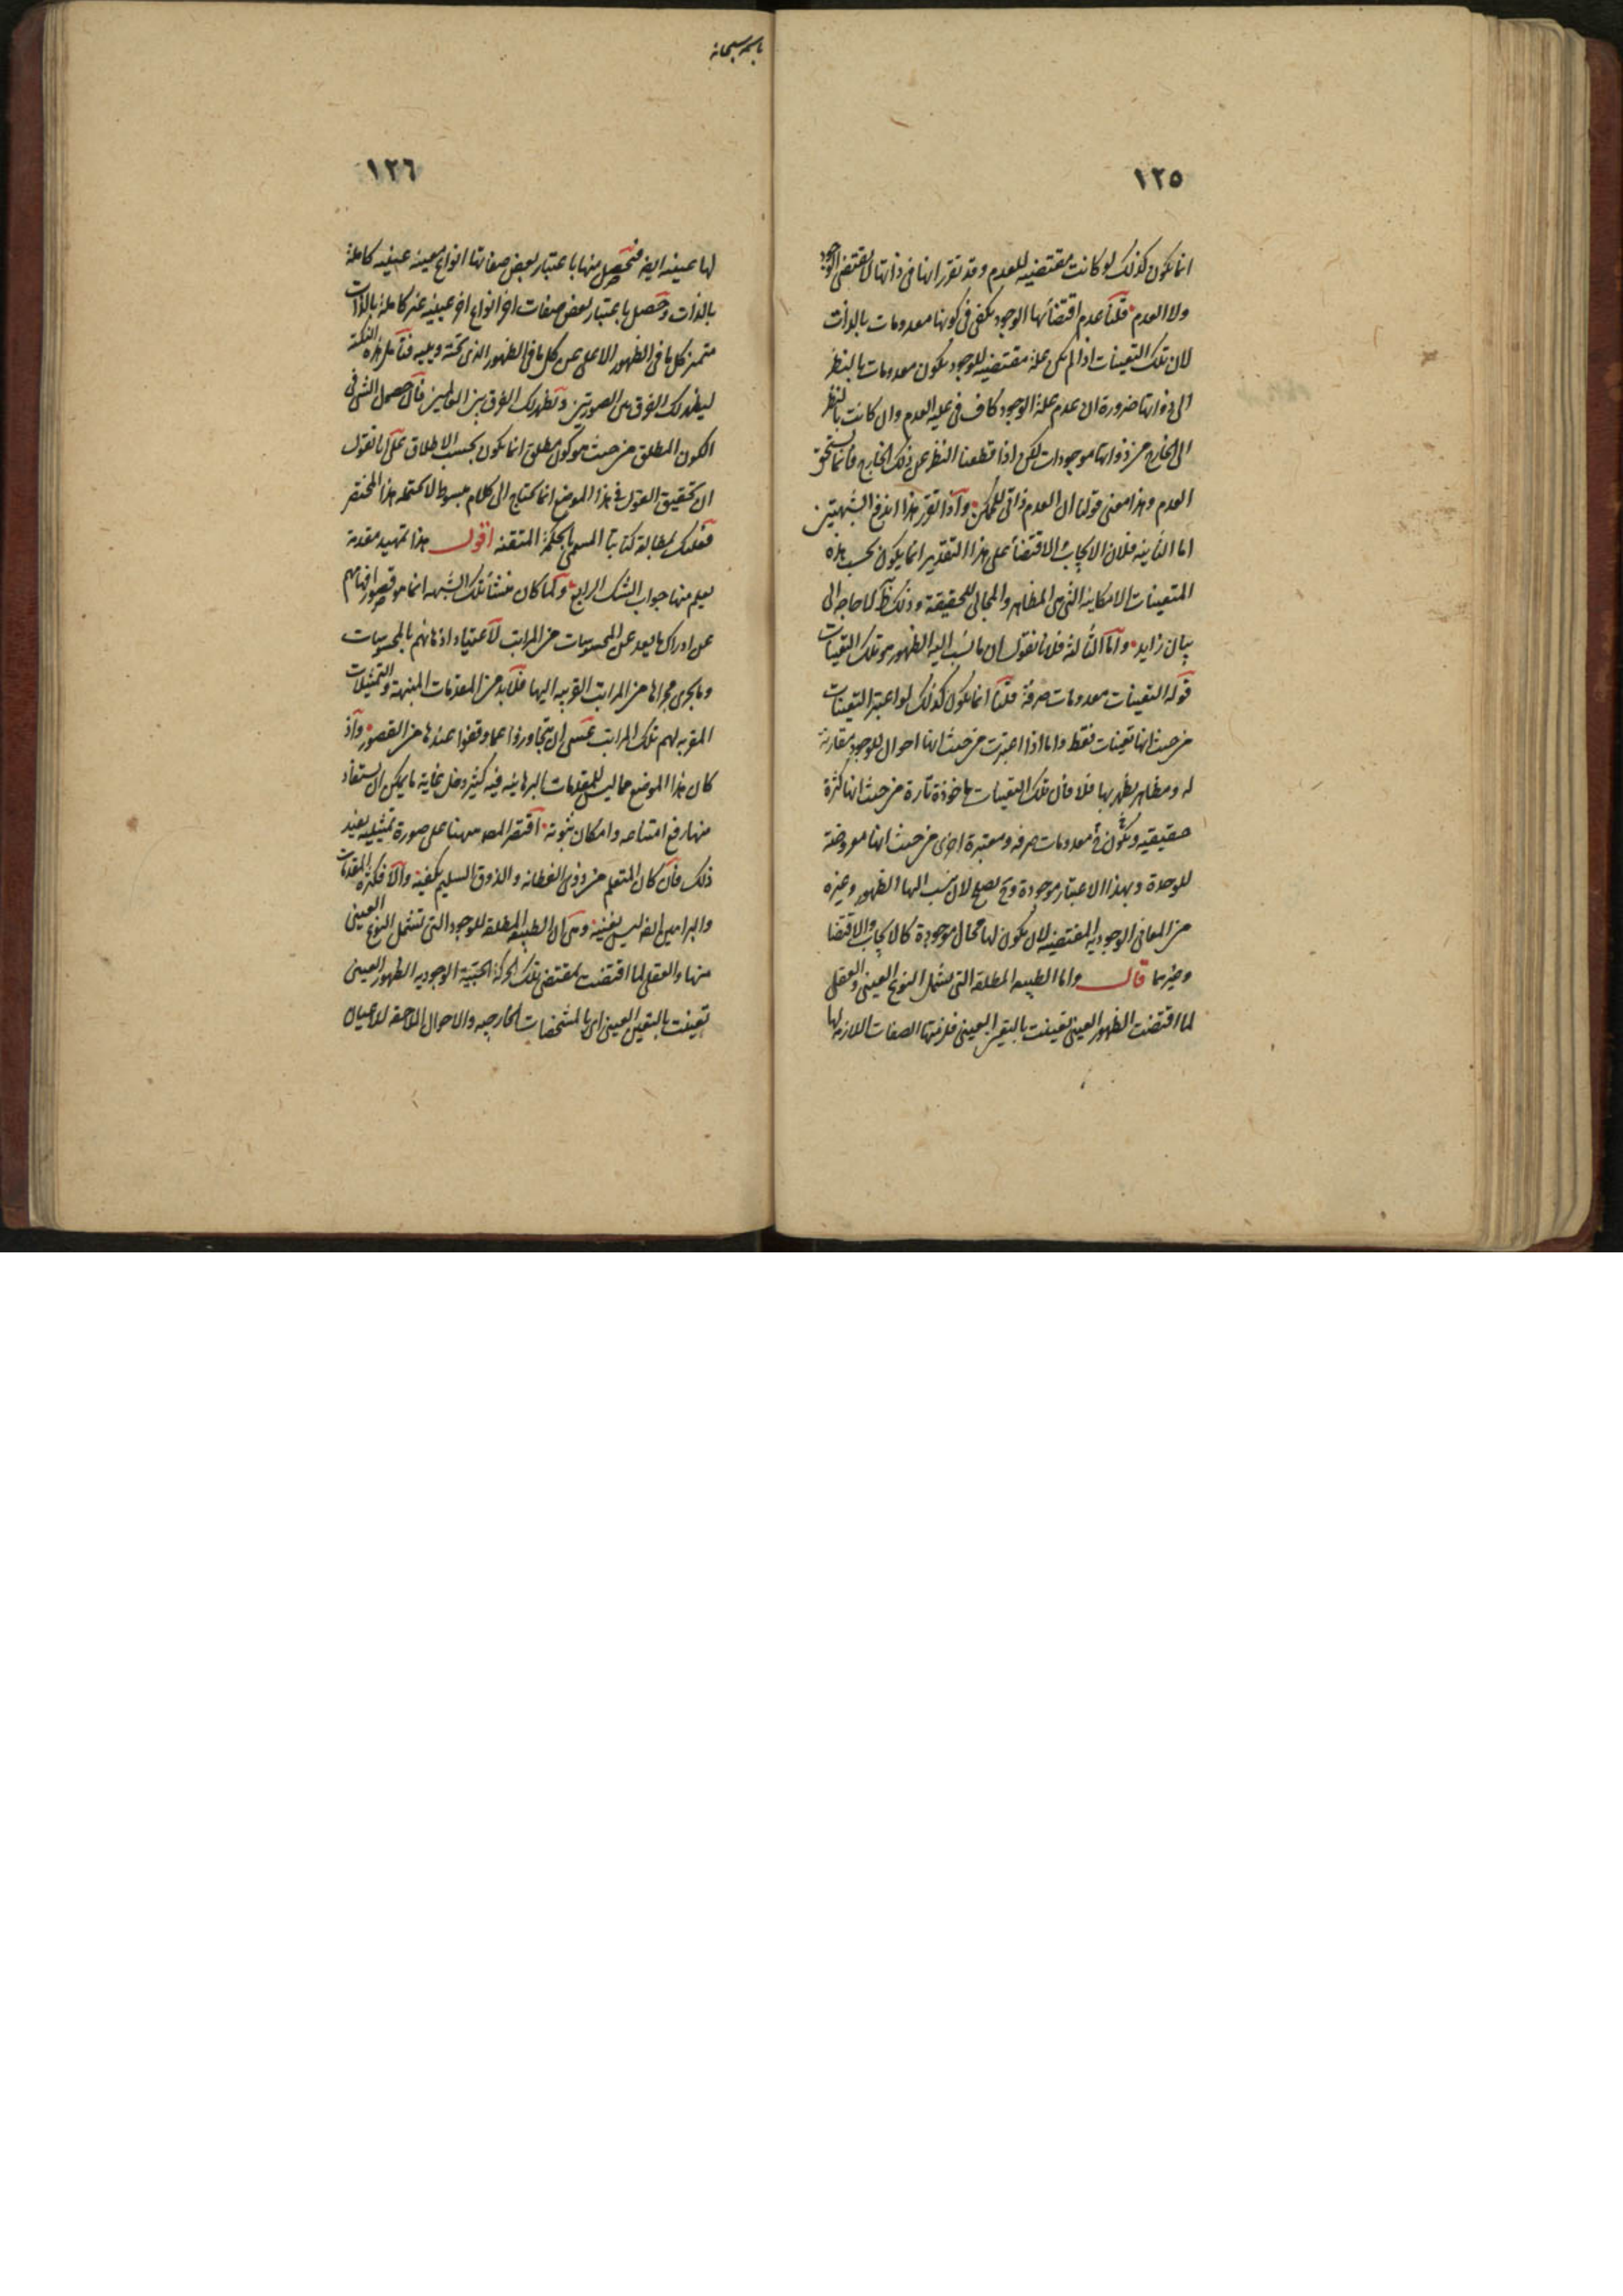 ١٢٥
انما يكون كذلك لو كانت مقتضيه للعدم وقد تقرر انها فى ذاتها لا يقتضى الوجود
ولا العدم قلنا عدم اقتضائها الوجود يكفى فى كونها معدومات بالذات
لان تلك التعينات اذا لم يكن علة مقتضيه للوجود يكون معدومات بالنظر
الى ذواتها ضرورة ان عدم علة الوجود كاف فى علية العدم وان كانت بالنظر
الى الخارج من ذواتها موجودات لكن اذا قطعنا النظر عن ذلك الخارج فانما يستحق
العدم وهذا معنى قولنا ان العدم ذاتى للممكن واذا تقرر هذا اندفع الشبهتين
اما الثانيه فلان الايجاب والاقتضاء على هذا التقدير انما يكون بحسب هذه
المتعينات الامكانيه التى هى المظاهر والمجالى للحقيقة وذلك ظ لا حاجه الى
بيان زايد واما الثالثة فلانا نقول ان ما نسب اليه الظهور هو تلك التعينات
قوله التعينات معدومات صرفة قلنا انما يكون كذلك لو اعتبر التعينات
من حيث انها تعينات فقط واما اذا اعتبرت من حيث انها احوال للوجود مقارنة
له ومظاهر يظهر بها فلا فان تلك التعينات ماخوذة تارة من حيث انها كثرة
حقيقيه ويكون ح معدومات صرفه ومعتبرة اخرى من حيث انها معروضة
للوحدة وبهذا الاعتبار موجودة وح يصلح لان ينسب اليها الظهور وغيره
من المعانى الوجوديه المقتضيه لان يكون لها محال موجودة كالايجاب والاقتضا
وغيرهما قال واما الطبيعه المطلقه التى تشمل النوع العينى والعقلى
لما اقتضت الظهور العينى تعينت بالتعين العينى فلزمتها الصفات اللازمه لها
باسمه سبحانه
١٢٦
لها عينيه ايضا فتحصل منها باعتبار بعض صفاتها انواع معينه عينيه كاملة
بالذات وحصل باعتبار بعض صفات اخر انواع اخر عينيه غير كاملة بالذات
متميز كل ما فى الظهور الاعلى عن كل ما فى الظهور الذى تحته ويليه فتامل هذه النكتة
ليظهر لك الفرق بين الصورتين ويظهر لك الفرق بين القولين فان حصول الشى فى
الكون المطلق من حيث هو كون مطلق انما يكون بحسب الاطلاق على انا نقول
ان تحقيق القول فى هذا الموضع انما يحتاج الى كلام مبسوط لا يحتمله هذا المختصر
فعليك بمطالعة كتابنا المسمى بالحكمة المتقنه اقول هذا تمهيد مقدمة
يعلم منها جواب الشك الرابع ولما كان منشأ تلك الشبهه انما هو قصور افهامهم
عن ادراك ما يعد عن المحسوسات من المراتب لاعتياد اذهانهم بالمحسوسات
وما يجرى مجراها من المراتب القريبه اليها فلابد من المقدمات المنبهة والتمثيلات
المقربه لهم تلك المراتب عسى ان يتجاوزوا عما وقفوا عندها من القصور واذ
كان هذا الموضع مما ليس للمقدمات البرهانيه فيه كثير دخل بل غاية ما يمكن ان يستفاد
منها رفع امتناعه وامكان ثبوته اقتصر المص ههنا على صورة تمثيليه يفيد
ذلك فان كان المتعلم من ذوى الفطانه والذوق السليم يكفيه والا فكثرة المقدمات
والبراهين ايضا ليس يغنيه وهى ان الطبيعه المطلقه للوجود التى تشمل النوع العينى
منها والعقلى لما اقتضت بمقتضى تلك الحركة الحبيّة الوجوديه الظهور العينى
تعينت بالتعين العينى اى بالمشخصات الخارجيه والاحوال اللاحقه للاعيان